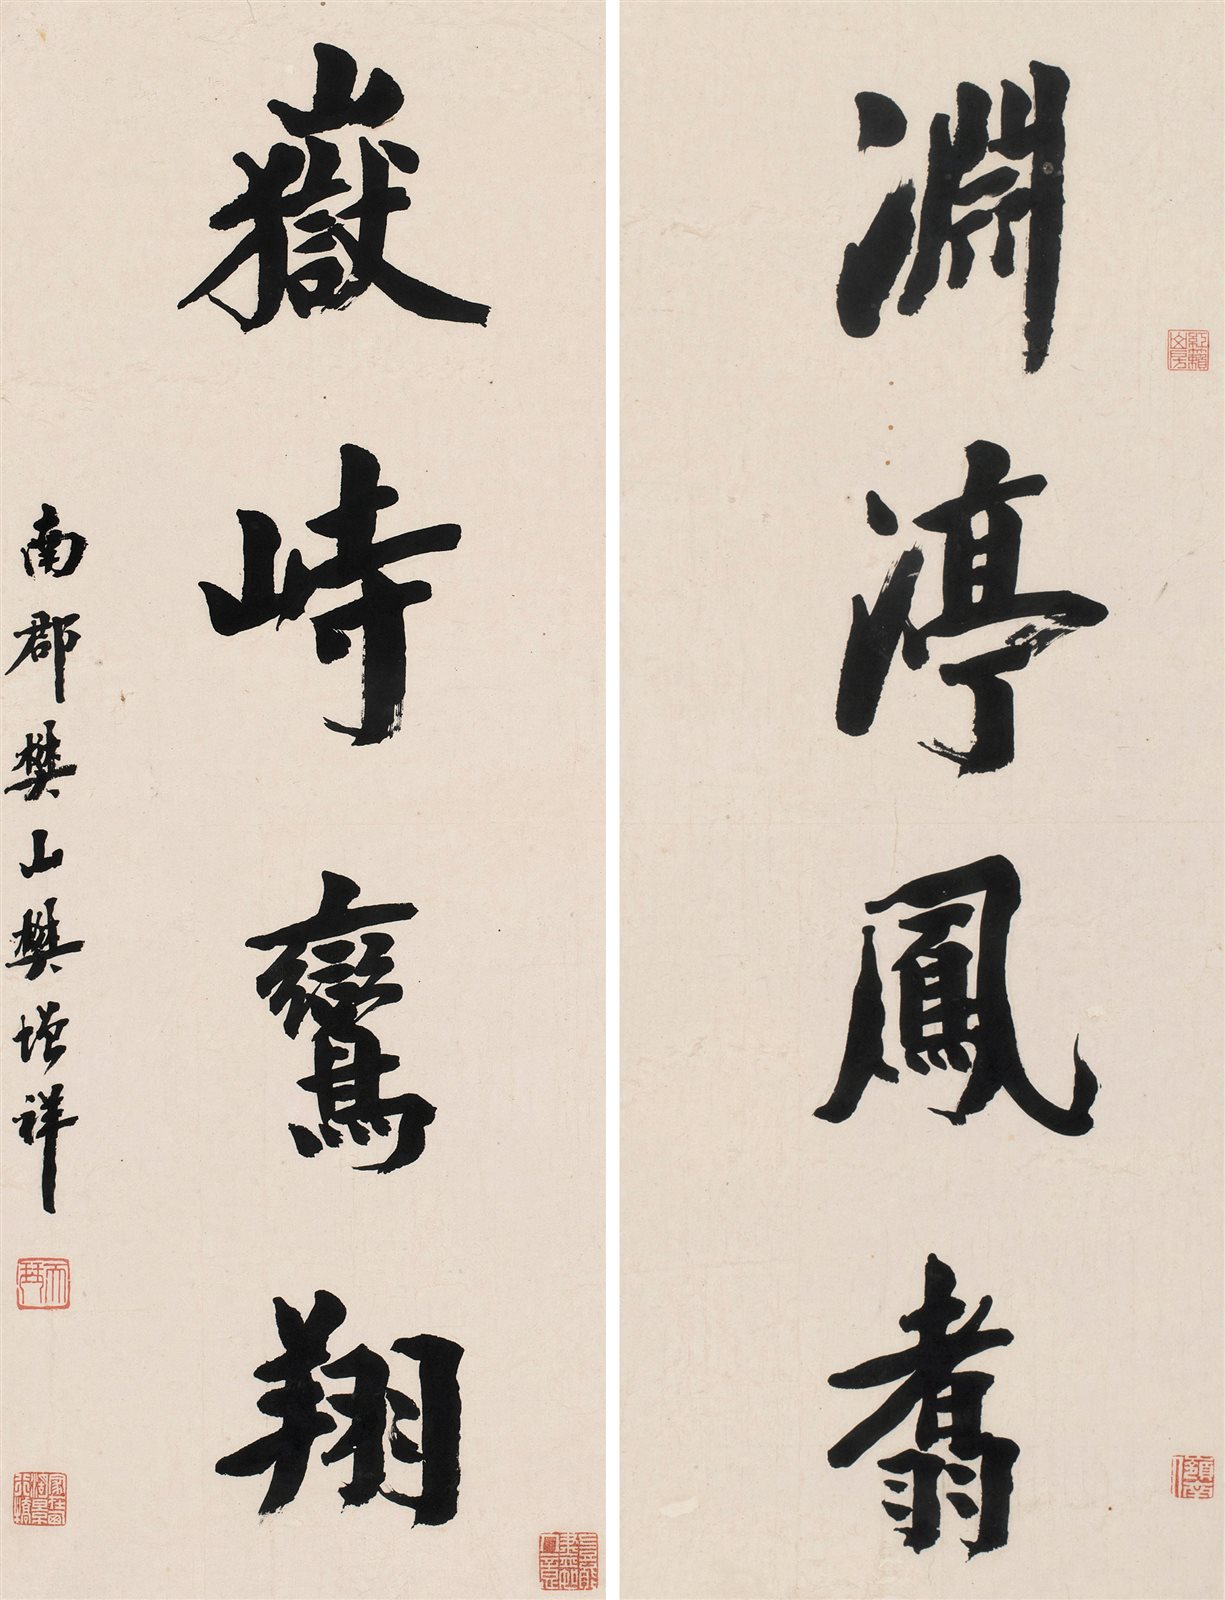 淵渟鳳翥
嶽峙鸞翔
南郡樊山樊增祥